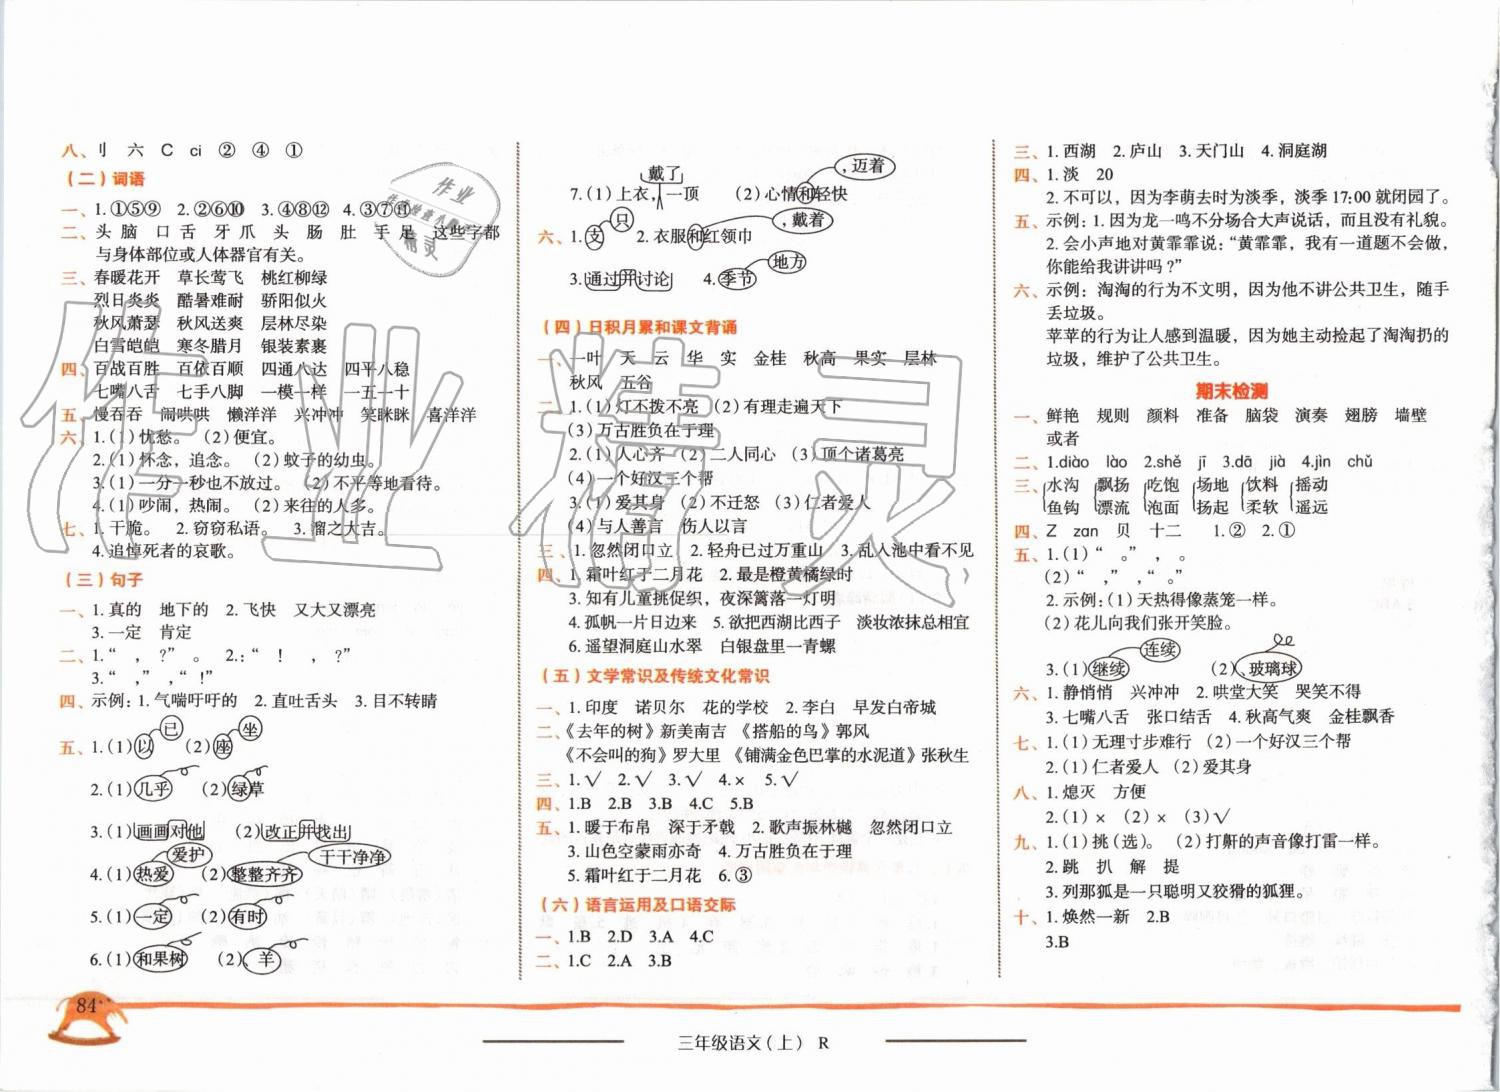 八、刂 六 C ci ② ④ ①
(二)词语
一、1.①⑤⑨ 2.②⑥⑩ 3.④⑧⑫ 4.③⑦⑪
二、头 脑 口 舌 牙 爪 头 肠 肚 手 足 这些字都
与身体部位或人体器官有关。
三、春暖花开 草长莺飞 桃红柳绿
烈日炎炎 酷暑难耐 骄阳似火
秋风萧瑟 秋风送爽 层林尽染
白雪皑皑 寒冬腊月 银装素裹
四、百战百胜 百依百顺 四通八达 四平八稳
七嘴八舌 七手八脚 一模一样 一五一十
五、慢吞吞 闹哄哄 懒洋洋 兴冲冲 笑眯眯 喜洋洋
六、1.(1)忧愁。 (2)便宜。
2.(1)怀念,追念。 (2)蚊子的幼虫。
3.(1)一分一秒也不放过。 (2)不平等地看待。
4.(1)吵闹,热闹。 (2)来往的人多。
七、1.干脆。 2.窃窃私语。 3.溜之大吉。
4.追悼死者的哀歌。
(三)句子
一、1.真的 地下的 2.飞快 又大又漂亮
3.一定 肯定
二、1.“ , ?” 。 2.:“ ! , ?”
3.“ ,” ,“ !”
四、示例:1.气喘吁吁的 2.直吐舌头 3.目不转睛
已 坐
五、1.(1)以 (2)座
2.(1)几乎 (2)绿草
3.(1)画画对他 (2)改正并找出
爱护 干干净净
4.(1)热爱 (2)整整齐齐
5.(1)一定 (2)有时
6.(1)和果树 (2)、羊
戴了 ,迈着
7.(1)上衣,一顶 (2)心情和轻快
只 ,戴着
六、1.支 2.衣服和红领巾
地方
3.通过并讨论 4.季节
(四)日积月累和课文背诵
一、一叶 天 云 华 实 金桂 秋高 果实 层林
秋风 五谷
二、1.(1)灯不拨不亮 (2)有理走遍天下
(3)万古胜负在于理
2.(1)人心齐 (2)二人同心 (3)顶个诸葛亮
(4)一个好汉三个帮
3.(1)爱其身 (2)不迁怒 (3)仁者爱人
(4)与人善言 伤人以言
三、1.忽然闭口立 2.轻舟已过万重山 3.乱入池中看不见
四、1.霜叶红于二月花 2.最是橙黄橘绿时
3.知有儿童挑促织,夜深篱落一灯明
4.孤帆一片日边来 5.欲把西湖比西子 淡妆浓抹总相宜
6.遥望洞庭山水翠 白银盘里一青螺
(五)文学常识及传统文化常识
一、1.印度 诺贝尔 花的学校 2.李白 早发白帝城
二、《去年的树》新美南吉 《搭船的鸟》郭风
《不会叫的狗》罗大里 《铺满金色巴掌的水泥道》张秋生
三、1.√ 2.√ 3.√ 4.× 5.√
四、1.B 2.B 3.B 4.C 5.B
五、1.暖于布帛 深于矛戟 2.歌声振林樾 忽然闭口立
3.山色空蒙雨亦奇 4.万古胜负在于理
5.霜叶红于二月花 6.③
(六)语言运用及口语交际
一、1.B 2.D 3.A 4.C
二、1.C 2.A 3.B
三、1.西湖 2.庐山 3.天门山 4.洞庭湖
四、1.淡 20
2.不可以,因为李萌去时为淡季,淡季17:00就闭园了。
五、示例:1.因为龙一鸣不分场合大声说话,而且没有礼貌。
2.会小声地对黄霏霏说:“黄霏霏,我有一道题不会做,
你能给我讲讲吗?”
六、示例:淘淘的行为不文明,因为他不讲公共卫生,随手
丢垃圾。
苹苹的行为让人感到温暖,因为她主动捡起了淘淘扔的
垃圾,维护了公共卫生。
期末检测
一、鲜艳 规则 颜料 准备 脑袋 演奏 翅膀 墙壁
或者
二、1.diào lào 2.shě jī 3.dā jià 4.jìn chǔ
三、水沟 飘扬 吃饱 场地 饮料 摇动
鱼钩 漂流 泡面 扬起 柔软 遥远
四、Z zan 贝 十二 1.② 2.①
五、1.(1)“ 。” , 。
(2)“ ,” ,“ 。”
2.示例:(1)天热得像蒸笼一样。
(2)花儿向我们张开笑脸。
连续
3.(1)继续 (2)、玻璃球
六、1.静悄悄 兴冲冲 2.哄堂大笑 哭笑不得
3.七嘴八舌 张口结舌 4.秋高气爽 金桂飘香
七、1.(1)无理寸步难行 (2)一个好汉三个帮
2.(1)仁者爱人 (2)爱其身
八、1.熄灭 方便
2.(1)× (2)× (3)√
九、1.(1)挑(选)。 (2)打鼾的声音像打雷一样。
2.跳 扒 解 提
3.列那狐是一只聪明又狡猾的狐狸。
十、1.焕然一新 2.B
3.B
84
三年级语文(上) R
作业精灵